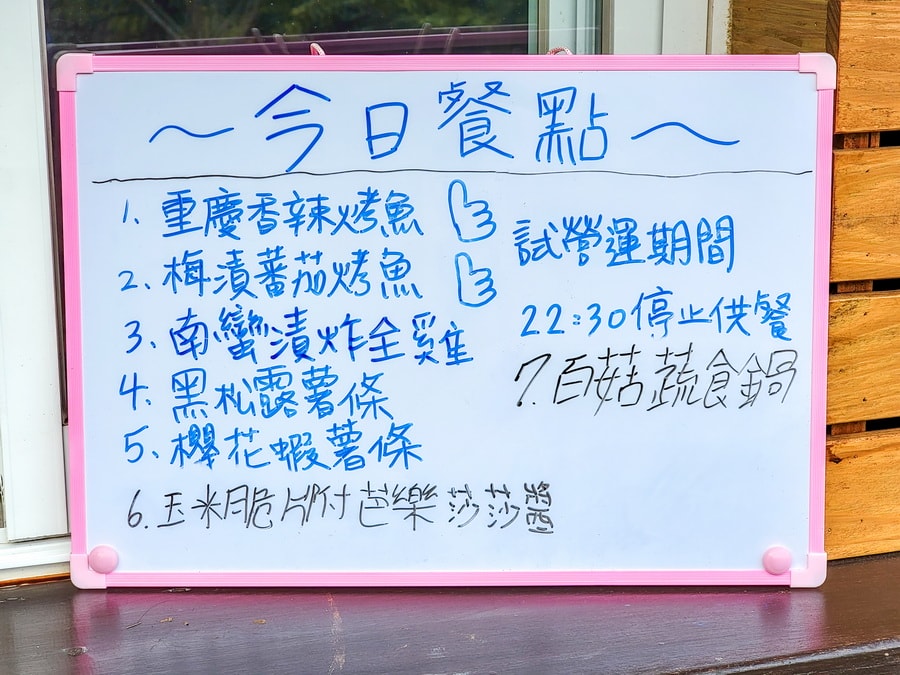 ～今日餐點～
1. 重慶香辣烤魚
2. 梅漬蕃茄烤魚
3. 南蠻漬炸全雞
4. 黑松露薯條
5. 櫻花蝦薯條
6. 玉米脆片附芭樂莎莎醬
試營運期間
22:30停止供餐
7. 百菇蔬食鍋